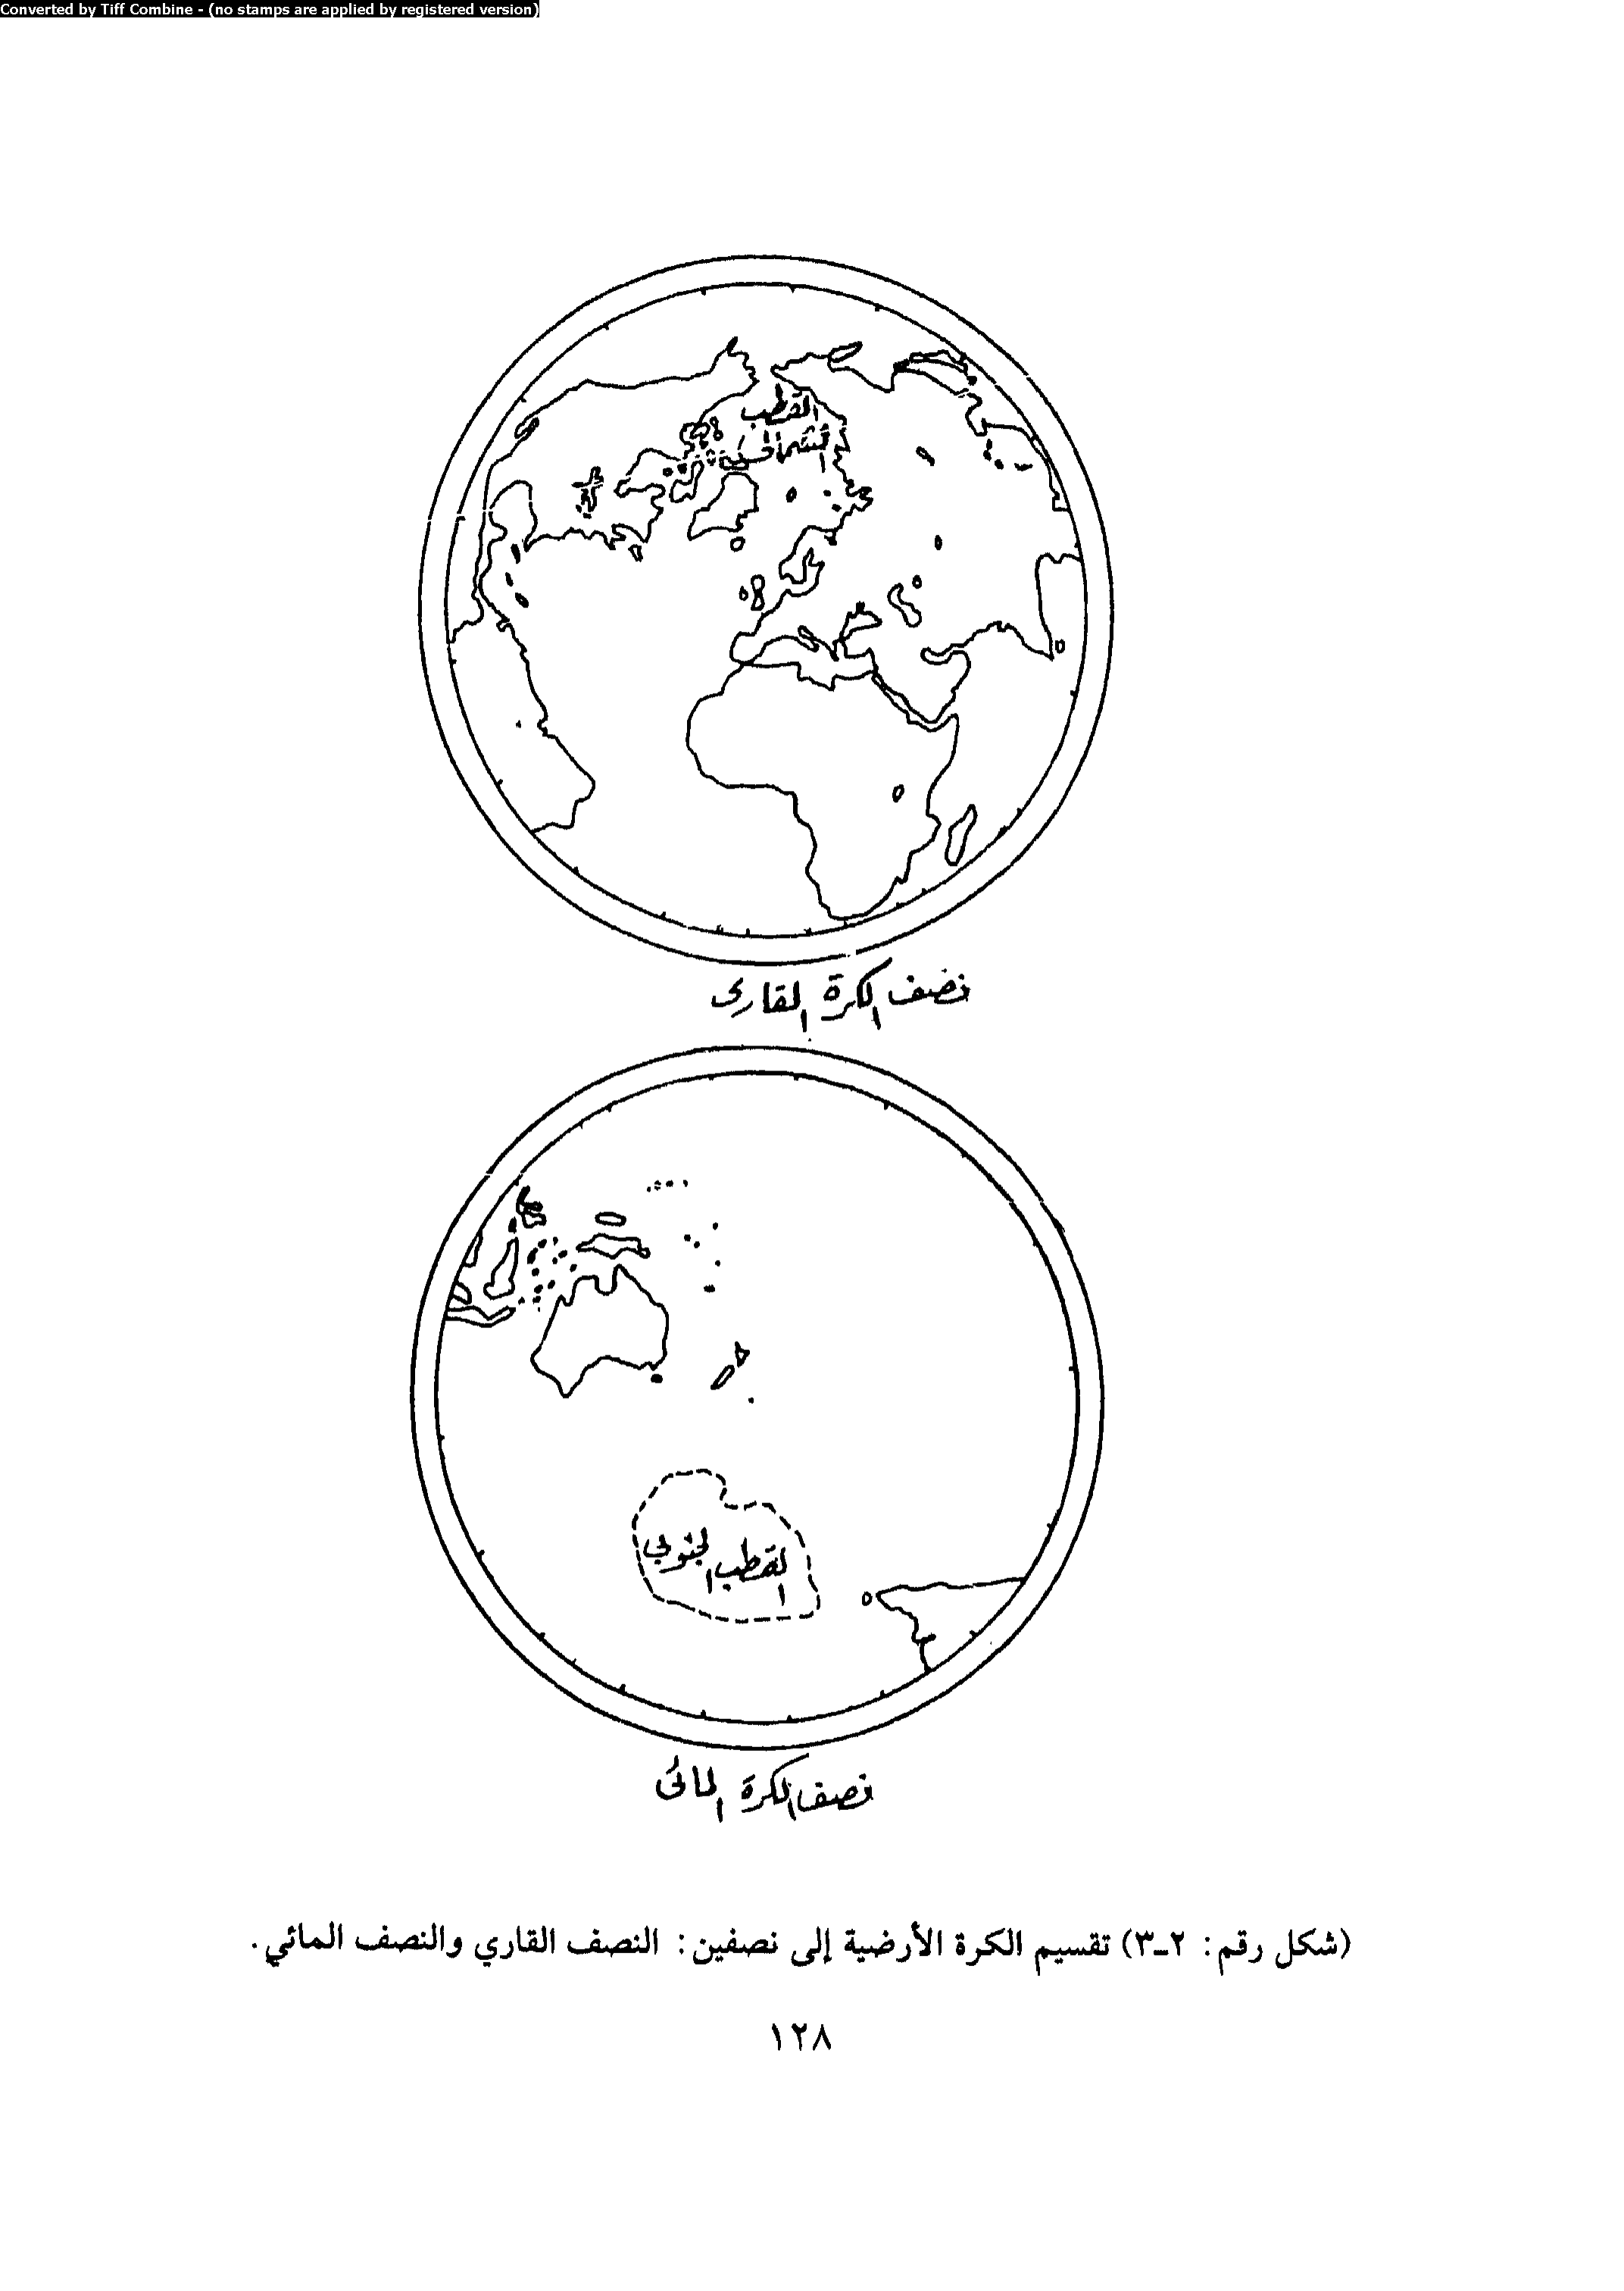 Converted by Tiff Combine - (no stamps are applied by registered version)
القطب
الشمالي
نصف الكرة القارى
القطب الجنوبي
نصف الكرة المائى
(شكل رقم: ٢-٣) تقسيم الكرة الأرضية إلى نصفين: النصف القاري والنصف المائي.
١٢٨